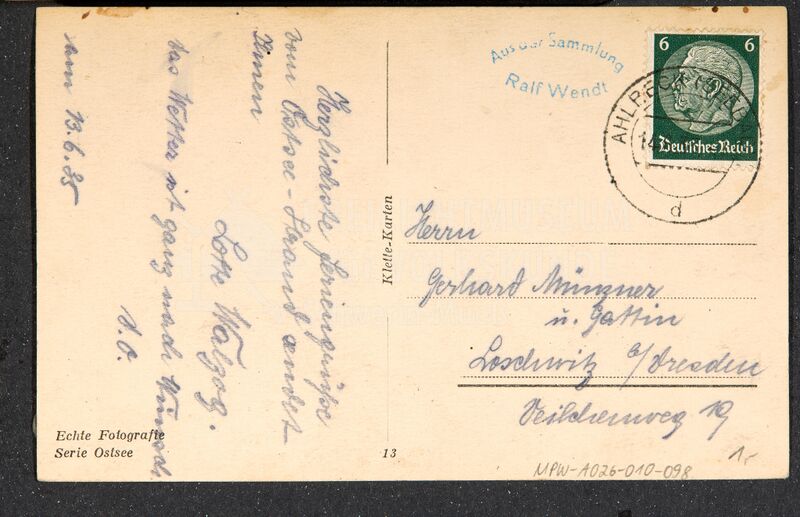 Herzlichste Feriengrüße
vom Ostsee-Strand sendet
Ihnen
Lotte
das Wetter ist ganz nach Wunsch
d. O.
am 13.6.35
Echte Fotografie
Serie Ostsee
13
Klette-Karten
Aus der Sammlung
Ralf Wendt
6 6
Deutsches Reich
AHLBECK
14
d
Herrn
Gerhard Münzner
u. Gattin
Loschwitz b/Dresden
Veilchenweg 19
1,-
MPW-A026-010-098